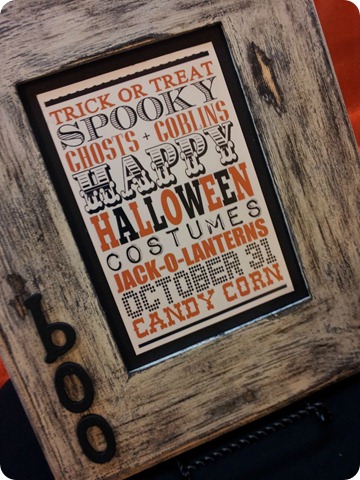 TRICK OR TREAT
SPOOKY
GHOSTS + GOBLINS
HAPPY
HALLOWEEN
COSTUMES
JACK-O-LANTERNS
OCTOBER 31
CANDY CORN
boo